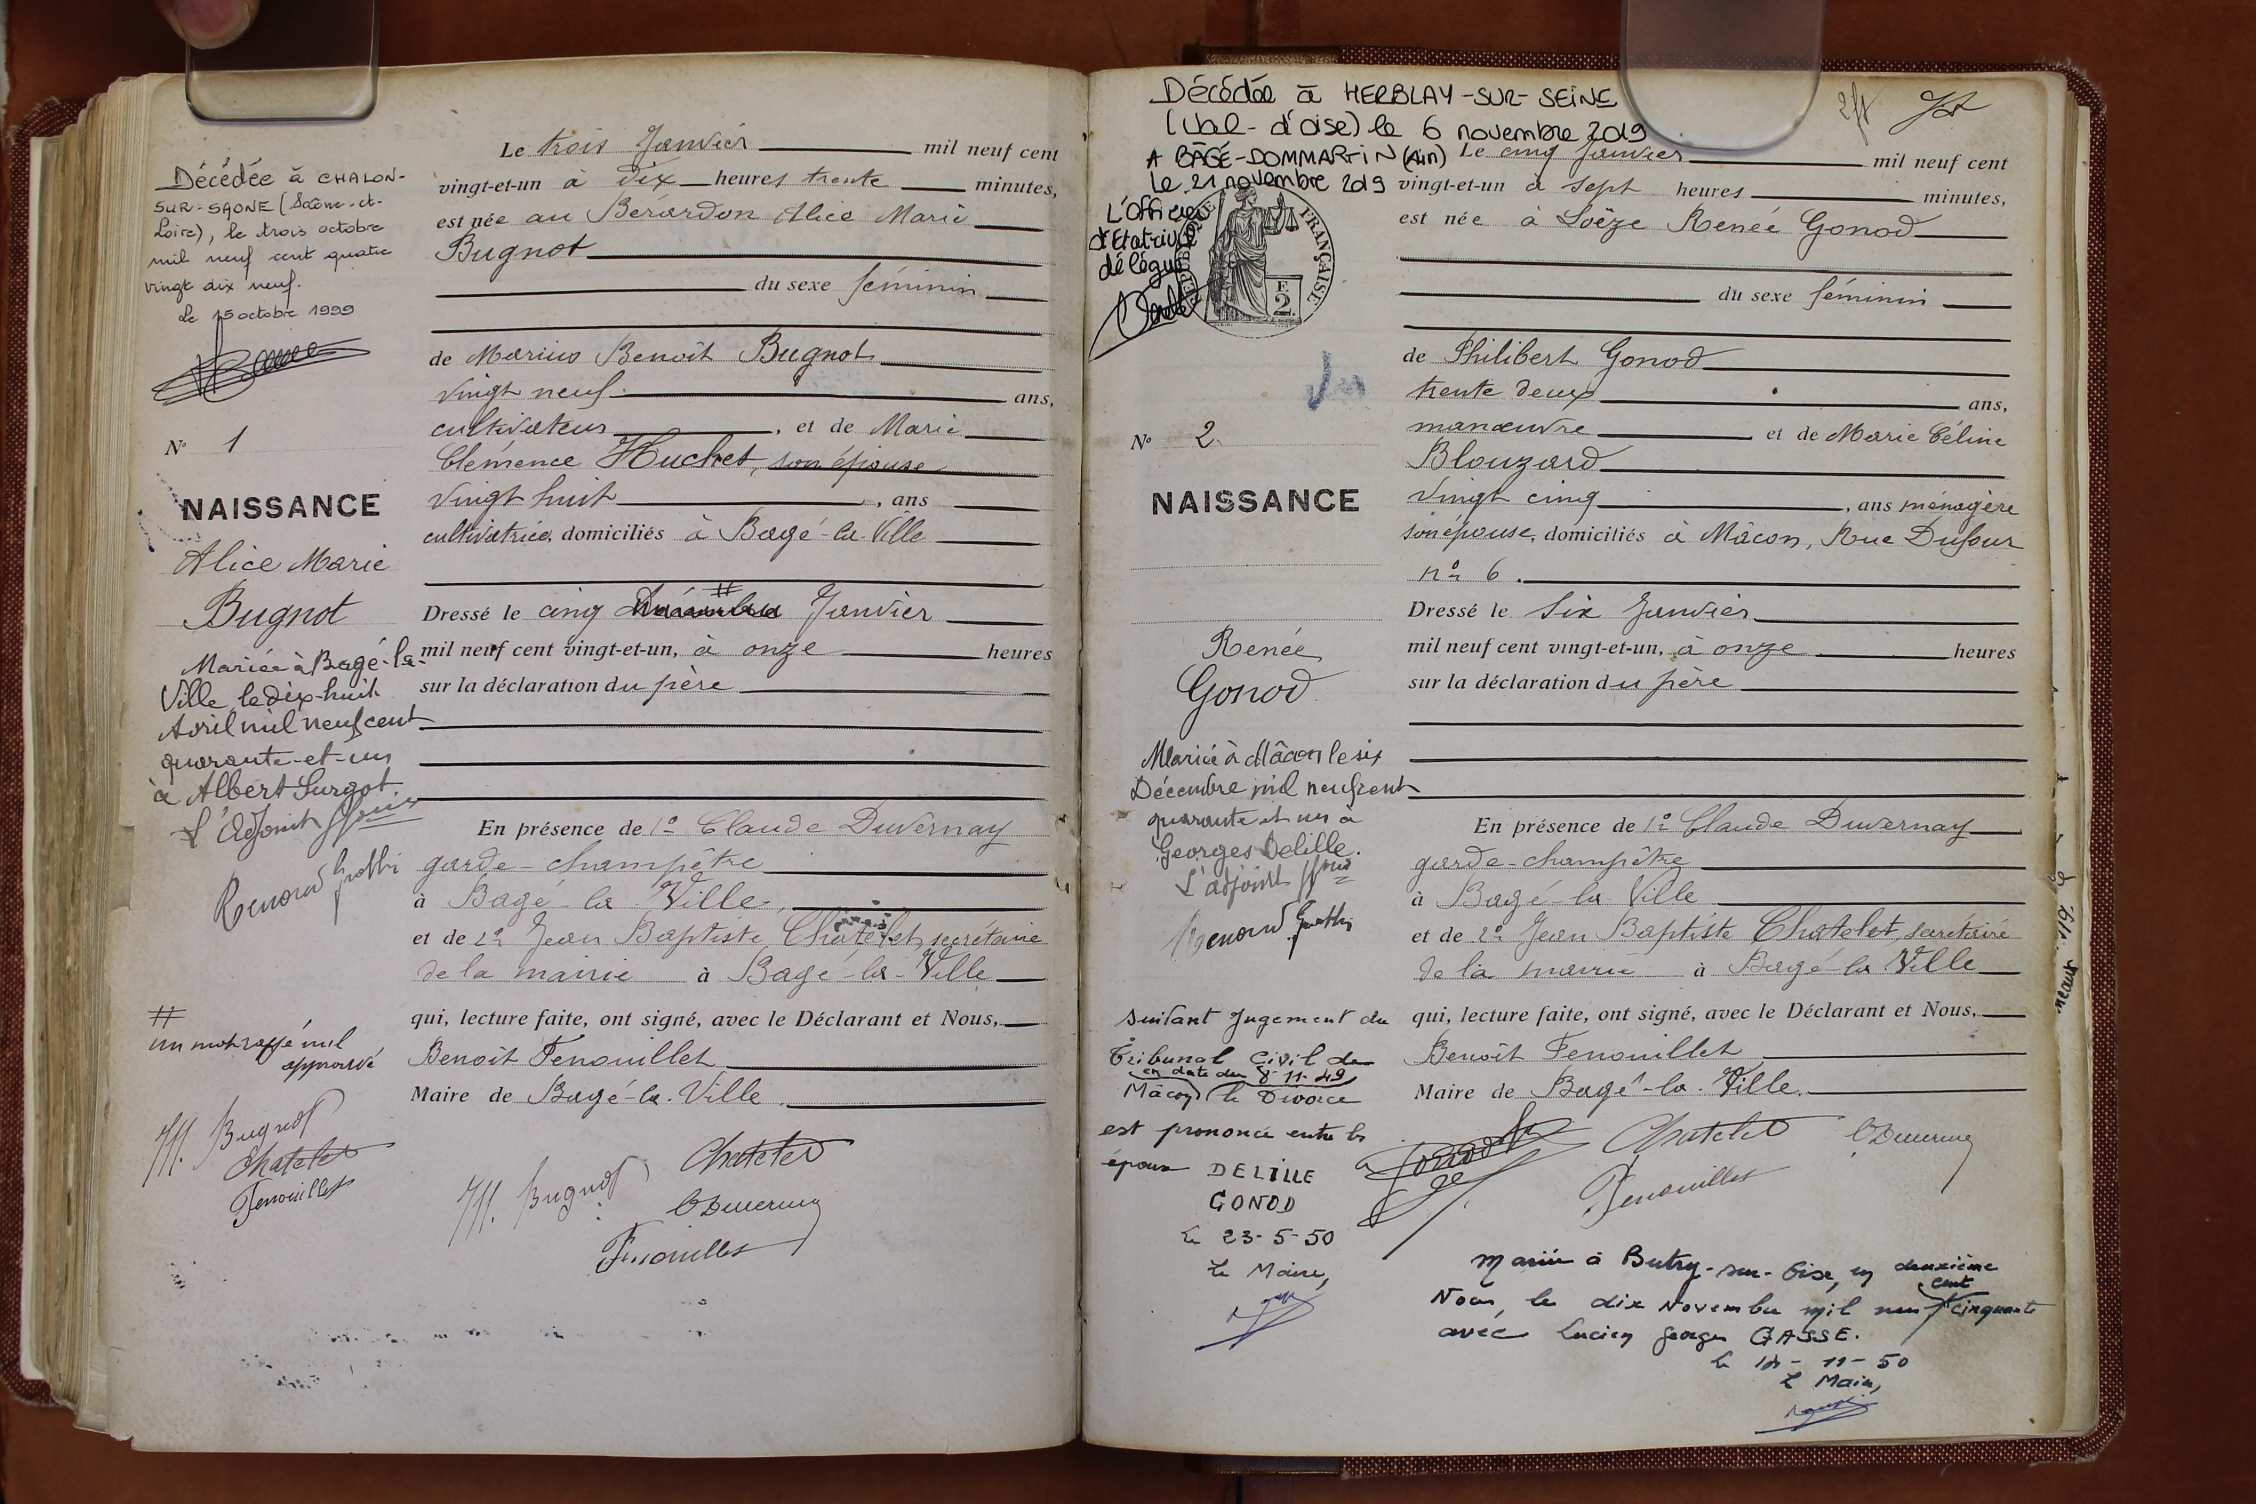 Décédée à CHALON-
SUR-SAONE (Saône-et-
Loire), le trois octobre
mil neuf cent quatre
vingt dix neuf.
Le 15 octobre 1999
N° 1
NAISSANCE
Alice Marie
Bugnot
Mariée à Bagé-la-
Ville le dix-huit
Avril mil neuf cent
quarante-et-un
à Albert Surgot
L'Adjoint
#
un mot rayé nul
approuvé
M. Bugnot
Chatelet
Fenouillet
Le trois Janvier mil neuf cent
vingt-et-un à dix heures trente minutes,
est née au Bérardon Alice Marie
Bugnot
du sexe féminin
de Marius Benoît Bugnot
vingt neuf ans,
cultivateur, et de Marie
Clémence Huchet, son épouse
vingt huit, ans
cultivatrice, domiciliés à Bagé-la-Ville
Dressé le cinq # Janvier
mil neuf cent vingt-et-un, à onze heures
sur la déclaration du père
En présence de 1° Claude Duvernay
garde-champêtre
à Bagé-la-Ville,
et de 2° Jean Baptiste Chatelet, secrétaire
de la mairie à Bagé-la-Ville
qui, lecture faite, ont signé, avec le Déclarant et Nous,
Benoît Fenouillet
Maire de Bagé-la-Ville.
M. Bugnot
Chatelet
C Duvernay
Fenouillet
Décédée à HERBLAY-SUR-SEINE
(Val-d'oise) le 6 novembre 2019
A BÂGÉ-DOMMARTIN (Ain)
Le 21 novembre 2019
L'officier
d'Etat-civil
délégué
RÉPUBLIQUE FRANÇAISE
F.
2.
Vu
N° 2.
NAISSANCE
Renée
Gonod
Mariée à Mâcon le six
Décembre mil neuf cent
quarante et un à
Georges Delille.
L'adjoint
Suivant Jugement du
Tribunal Civil de
en date du 8-11-49
Mâcon le Divorce
est prononcé entre les
époux DELILLE
GONOD
le 23-5-50
Le Maire,
Le cinq Janvier mil neuf cent
vingt-et-un à sept heures minutes,
est née à Loëze Renée Gonod
du sexe féminin
de Philibert Gonod
trente deux ans,
manœuvre et de Marie Céline
Blouzard
vingt cinq, ans ménagère
son épouse, domiciliés à Mâcon, Rue Dufour
n° 6.
Dressé le six Janvier
mil neuf cent vingt-et-un, à onze heures
sur la déclaration du père
En présence de 1° Claude Duvernay
garde-champêtre
à Bagé-la-Ville
et de 2° Jean Baptiste Chatelet, secrétaire
de la mairie à Bagé-la-Ville
qui, lecture faite, ont signé, avec le Déclarant et Nous,
Benoît Fenouillet
Maire de Bagé-la-Ville.
Gonod
Chatelet
C Duvernay
Fenouillet
Mariée à Butry-sur-Oise, en deuxième
cent
Noces, le dix Novembre mil neuf cinquante
avec Lucien Georges GASSE.
le 18-11-50
Le Maire,